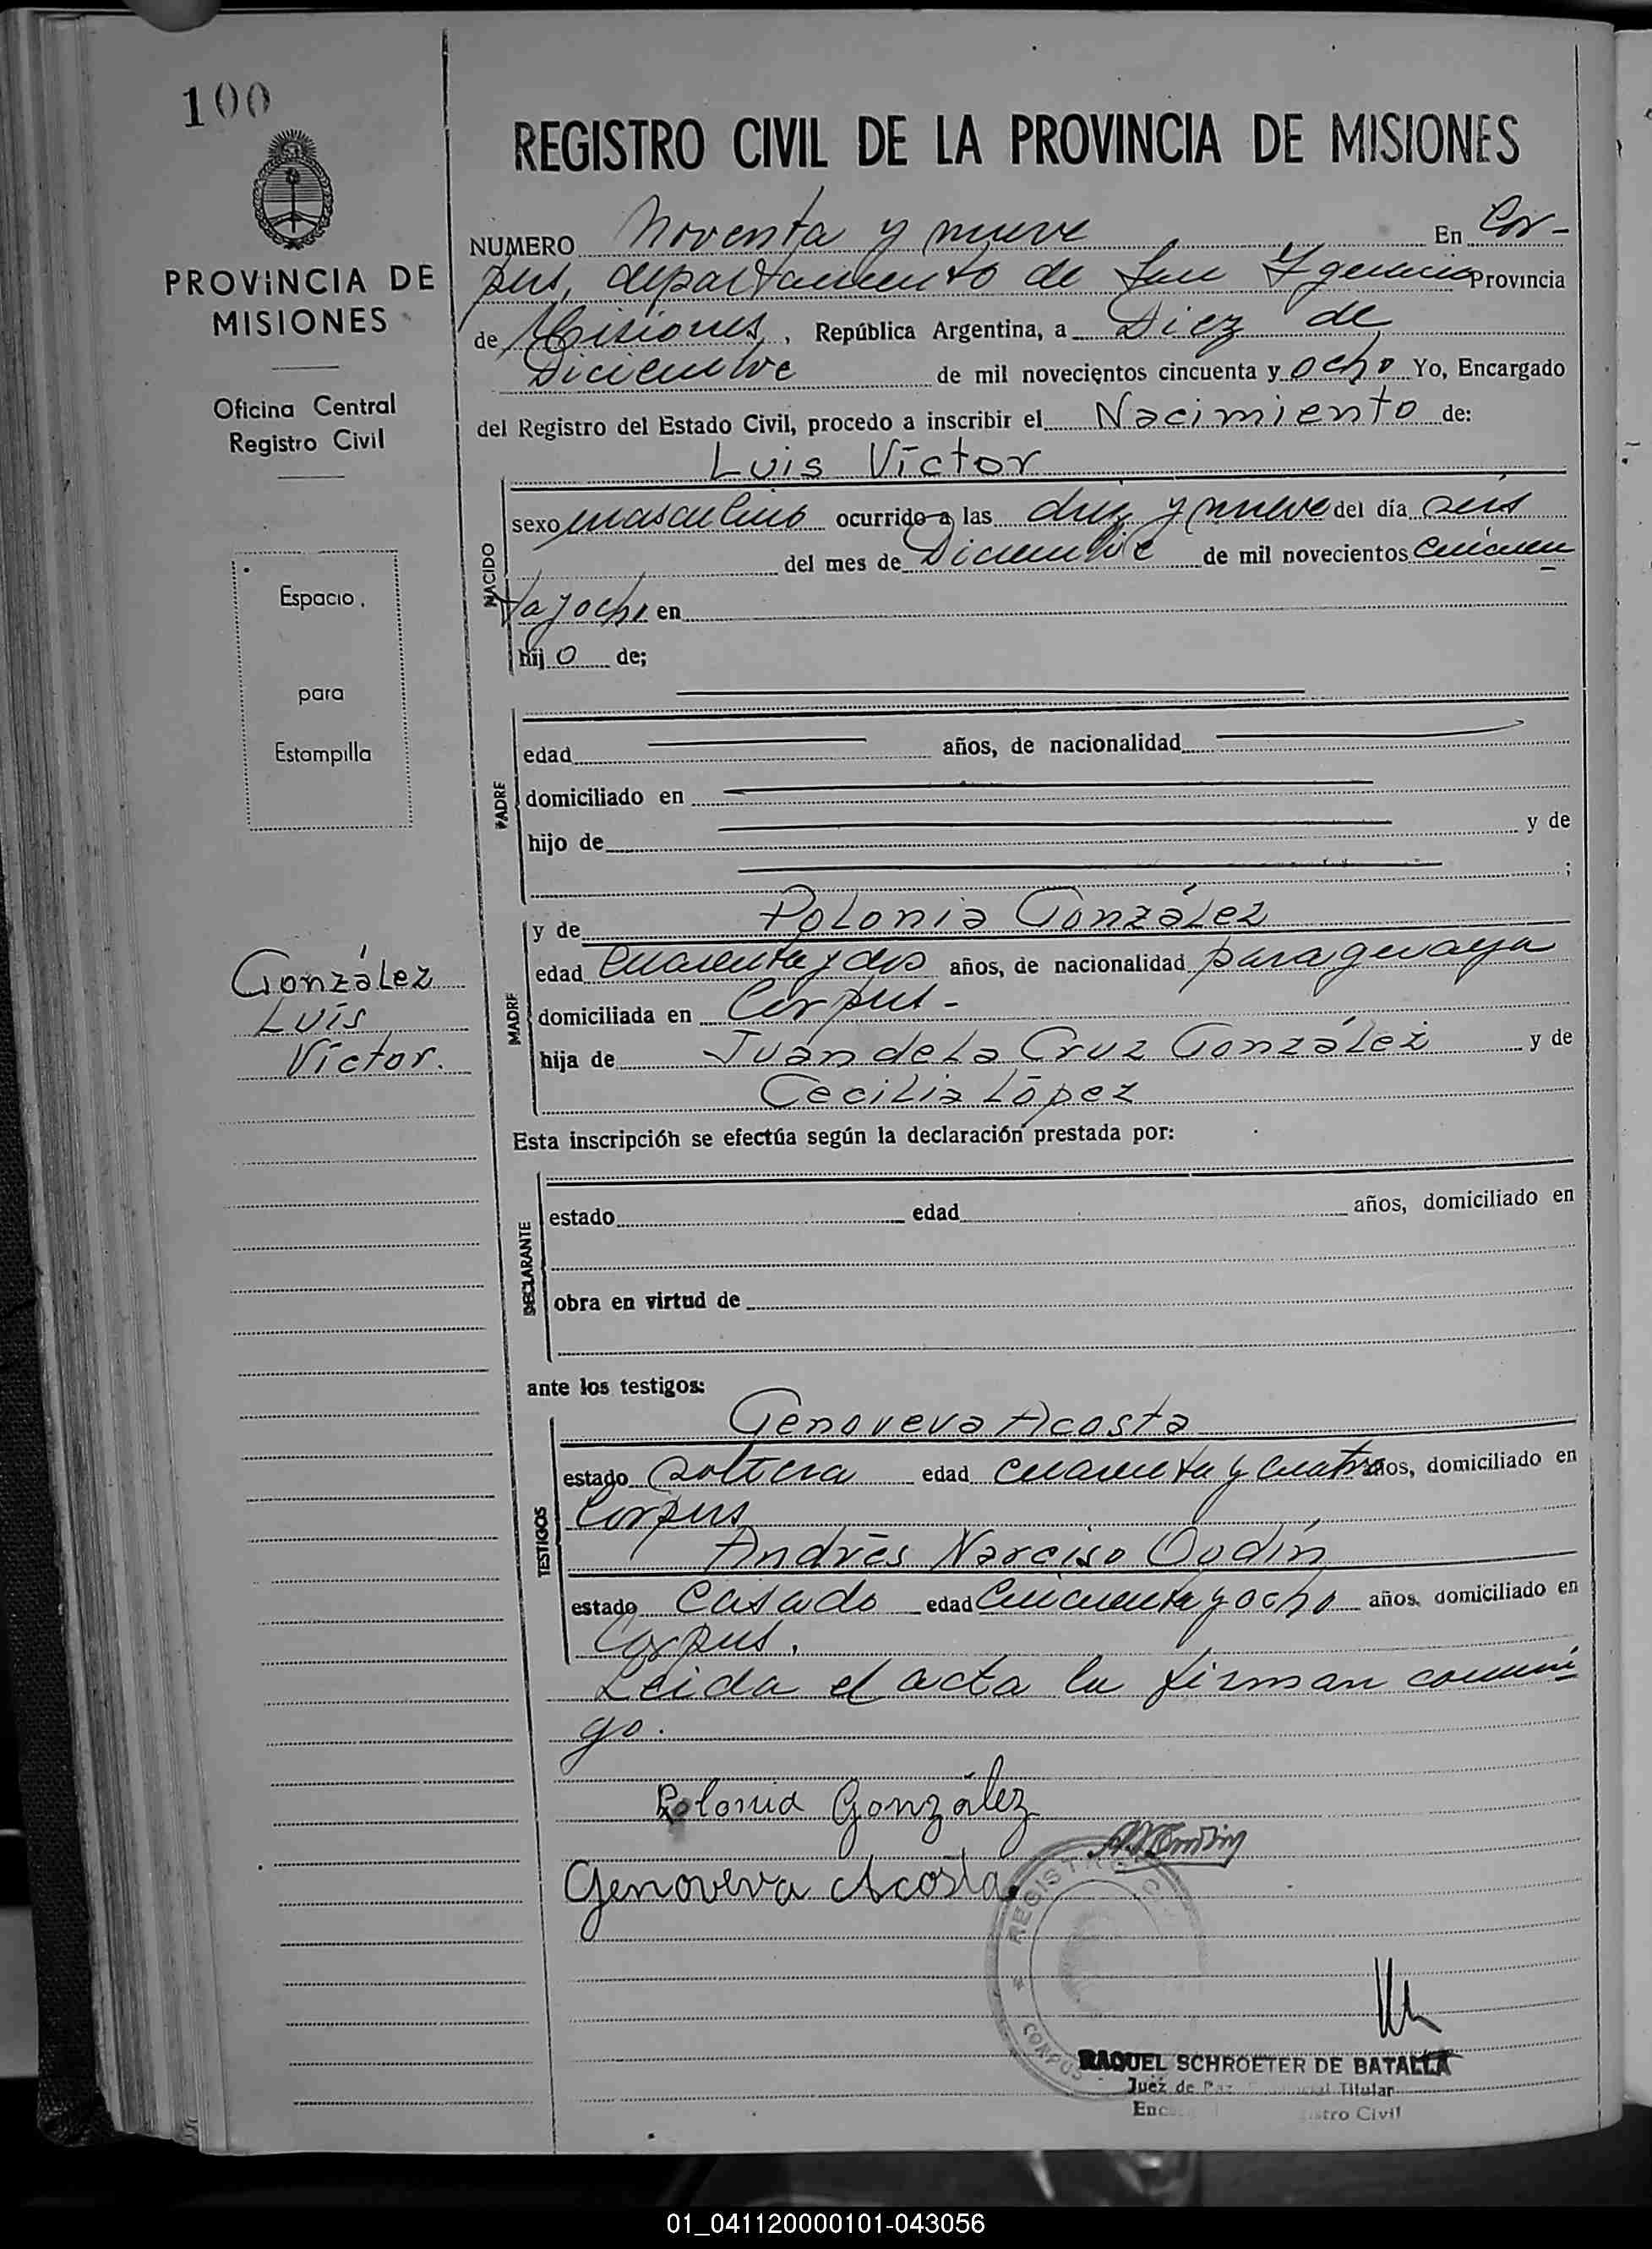 100
REGISTRO CIVIL DE LA PROVINCIA DE MISIONES
PROVINCIA DE
MISIONES
Oficina Central
Registro Civil
Espacio
para
Estampilla
González
Luís
Víctor.
NUMERO Noventa y nueve En Cor-
pus, departamento de San Ygnacio Provincia
de Misiones, República Argentina, a Diez de
Diciembre de mil novecientos cincuenta y ocho Yo, Encargado
del Registro del Estado Civil, procedo a inscribir el Nacimiento de:
Luis Víctor
NACIDO
sexo masculino ocurrido a las diez y nueve del día seis
del mes de Diciembre de mil novecientos cincuen
ta y ocho en
hij o de;
PADRE
edad años, de nacionalidad
domiciliado en
hijo de y de
;
MADRE
y de Polonia González
edad cuarenta y dos años, de nacionalidad paraguaya
domiciliada en Corpus-
hija de Juan de La Cruz González y de
Cecilia López
Esta inscripción se efectúa según la declaración prestada por:
DECLARANTE
estado edad años, domiciliado en
obra en virtud de
ante los testigos:
TESTIGOS
Genoveva Acosta
estado soltera edad cuarenta y cuatro años, domiciliado en
Corpus
Andrés Narciso Oudín
estado casado edad cincuenta y ocho años, domiciliado en
Corpus.
Leida el acta la firman conmi
go.
Polonia González
Genoveva Acosta
REGISTRO
CORPUS
RAQUEL SCHROETER DE BATALLA
Juez de Paz Titular
Civil
01_041120000101-043056